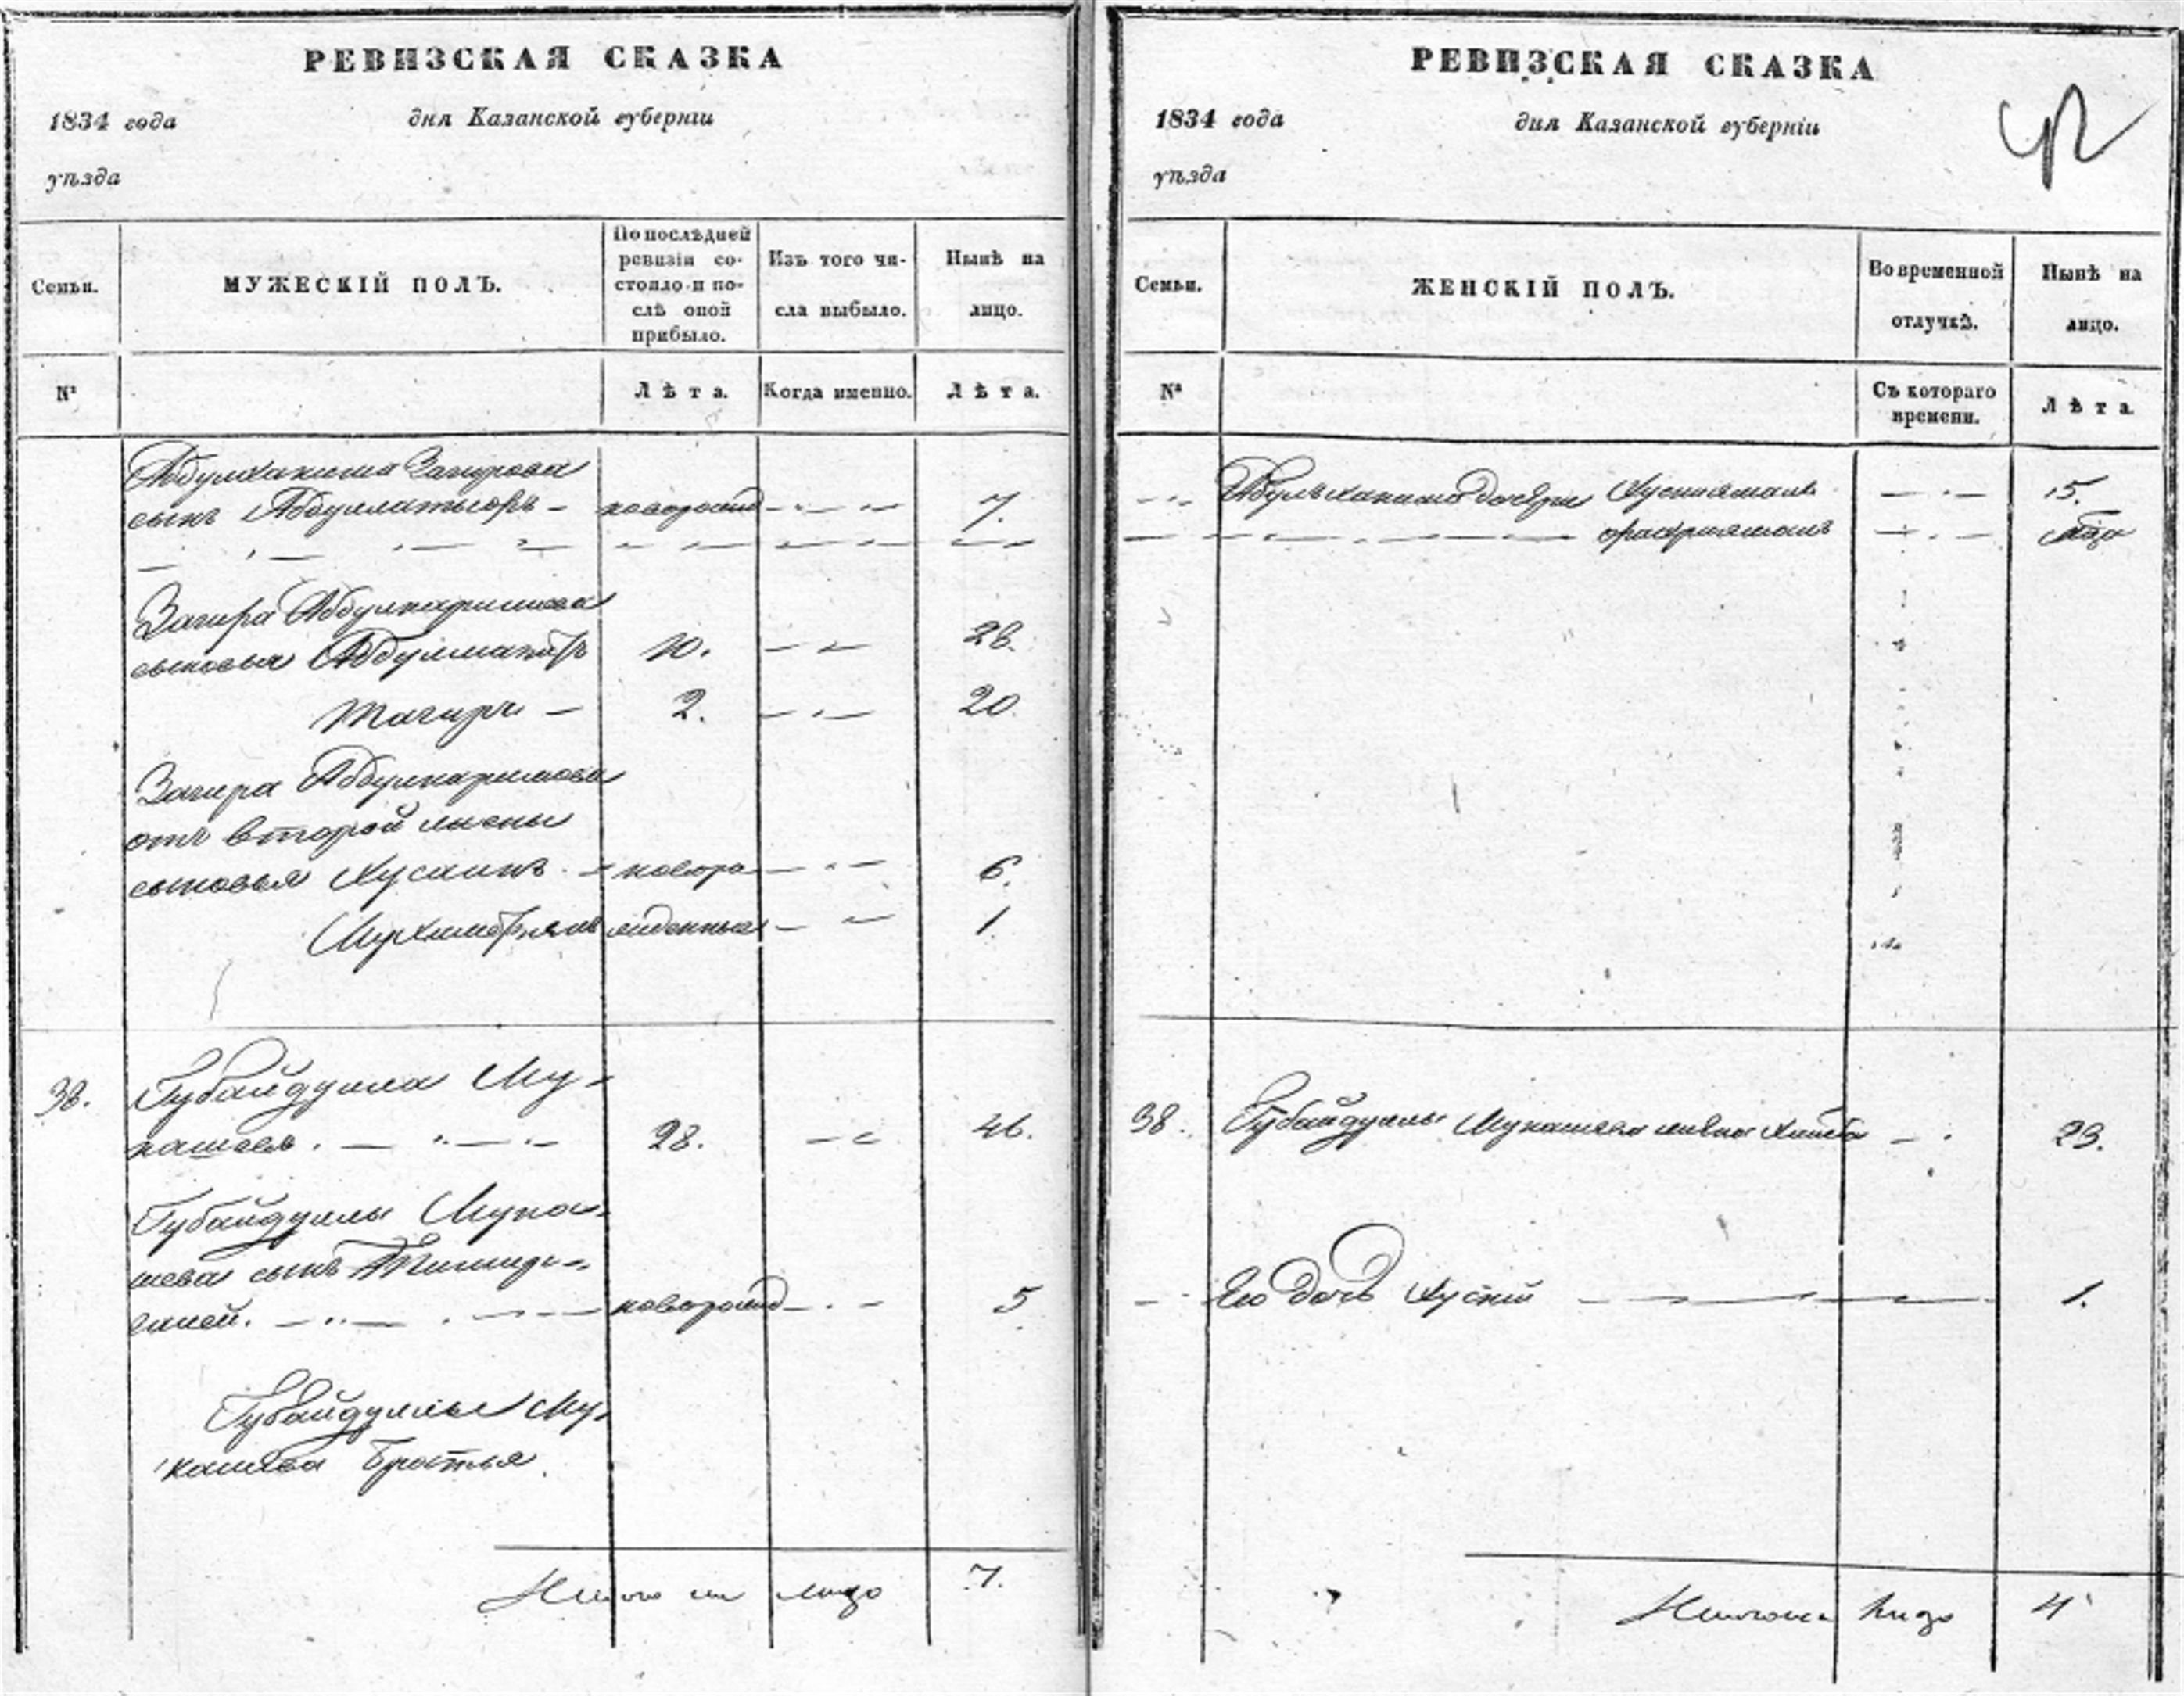 РЕВИЗСКАЯ СКАЗКА
1834 года
дня Казанской губерніи
уѣзда
Семьи.
МУЖЕСКІЙ ПОЛЪ.
По послѣдней
ревизіи со-
стояло и по-
слѣ оной
прибыло.
Изъ того чи-
сла выбыло.
Нынѣ на
лицо.
№
Лѣта.
Когда именно.
Лѣта.
Абдулхакима Загирова
сынъ Абдуллатыфъ — новорожд — 7.
Загира Абдулкаримова
сыновья 10. — 28.
Тагиръ — 2. — 20.
Загира Абдулкаримова
отъ второй жены
сыновья Хусаинъ — новоро — 6.
жденные — 1.
38. Губайдулла Му-
кашевъ. — 28. — 46.
Губайдуллы Мука-
шева сынъ
новорожд — 5.
Губайдуллы Му-
кашева братья
Итого на лицо 7.
РЕВИЗСКАЯ СКАЗКА
1834 года
дня Казанской губерніи
уѣзда
42
Семьи.
ЖЕНСКІЙ ПОЛЪ.
Во временной
отлучкѣ.
Нынѣ на
лицо.
№
Съ котораго
времени.
Лѣта.
дочери Хуснямалъ — 15.
38. Губайдуллы Мукашева жена — 23.
Его дочь — 1.
Итого на лицо 4